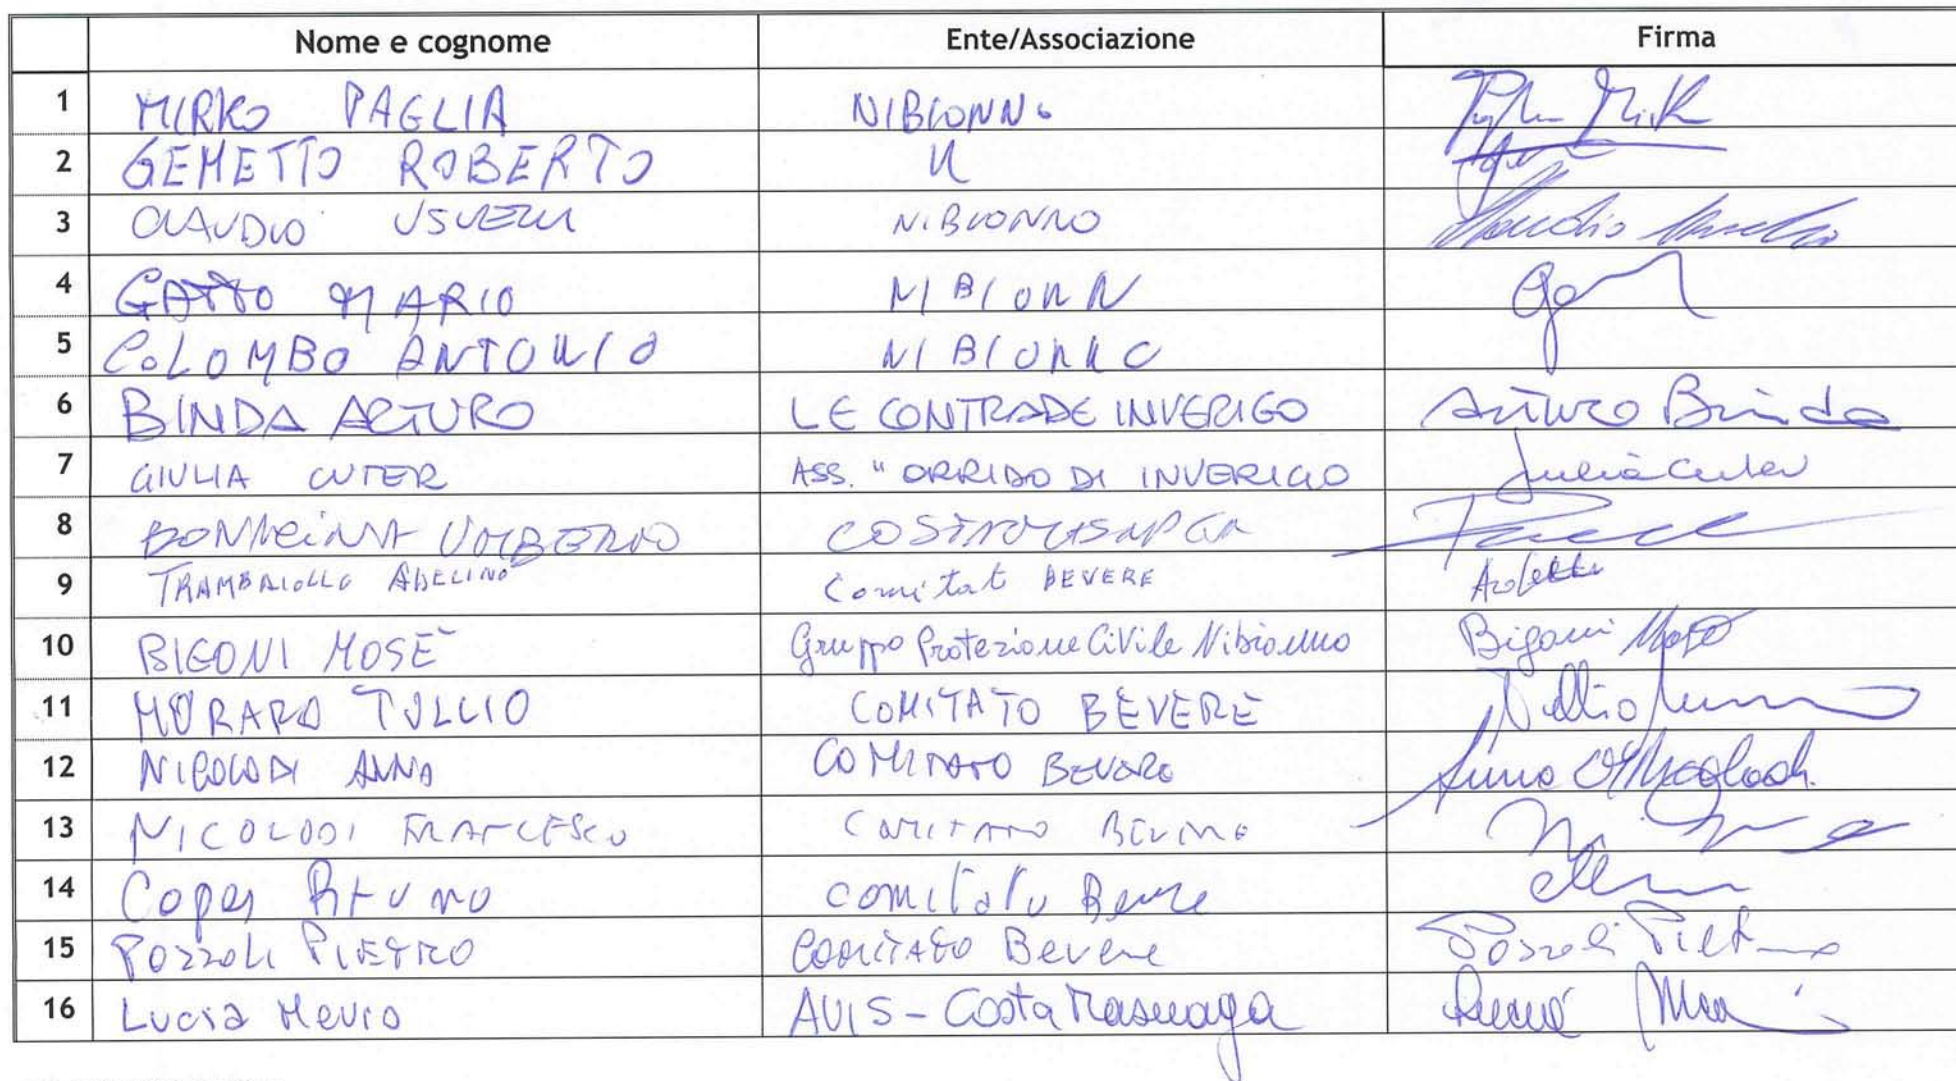 Nome e cognome Ente/Associazione Firma
1 MIRKO PAGLIA NIBIONNO
2 GEMETTO ROBERTO "
3 CLAUDIO USUELLI NIBIONNO Claudio Usuelli
4 GATTO MARIO NIBIONN
5 COLOMBO ANTONIO NIBIONNO
6 BINDA ARTURO LE CONTRADE INVERIGO Arturo Binda
7 GIULIA CUTER ASS. "ORRIDO DI INVERIGO Giulia Cuter
8 UMBERTO
9 TRAMBAIOLLO ADELINO Comitat BEVERE
10 BIGONI MOSE' Gruppo Protezione Civile Nibionno Bigoni Mosè
11 MORARO TULLIO COMITATO BEVERE Tullio
12 NICOLODI ANNA COMITATO BEVERE Anna
13 NICOLODI FRANCESCO COMITATO BEVERE
14 Copes Bruno comitato Bevere
15 POZZOLI PIETRO COMITATO Bevere Pozzoli Pietro
16 Lucia Mevio AVIS - Costa Masnaga